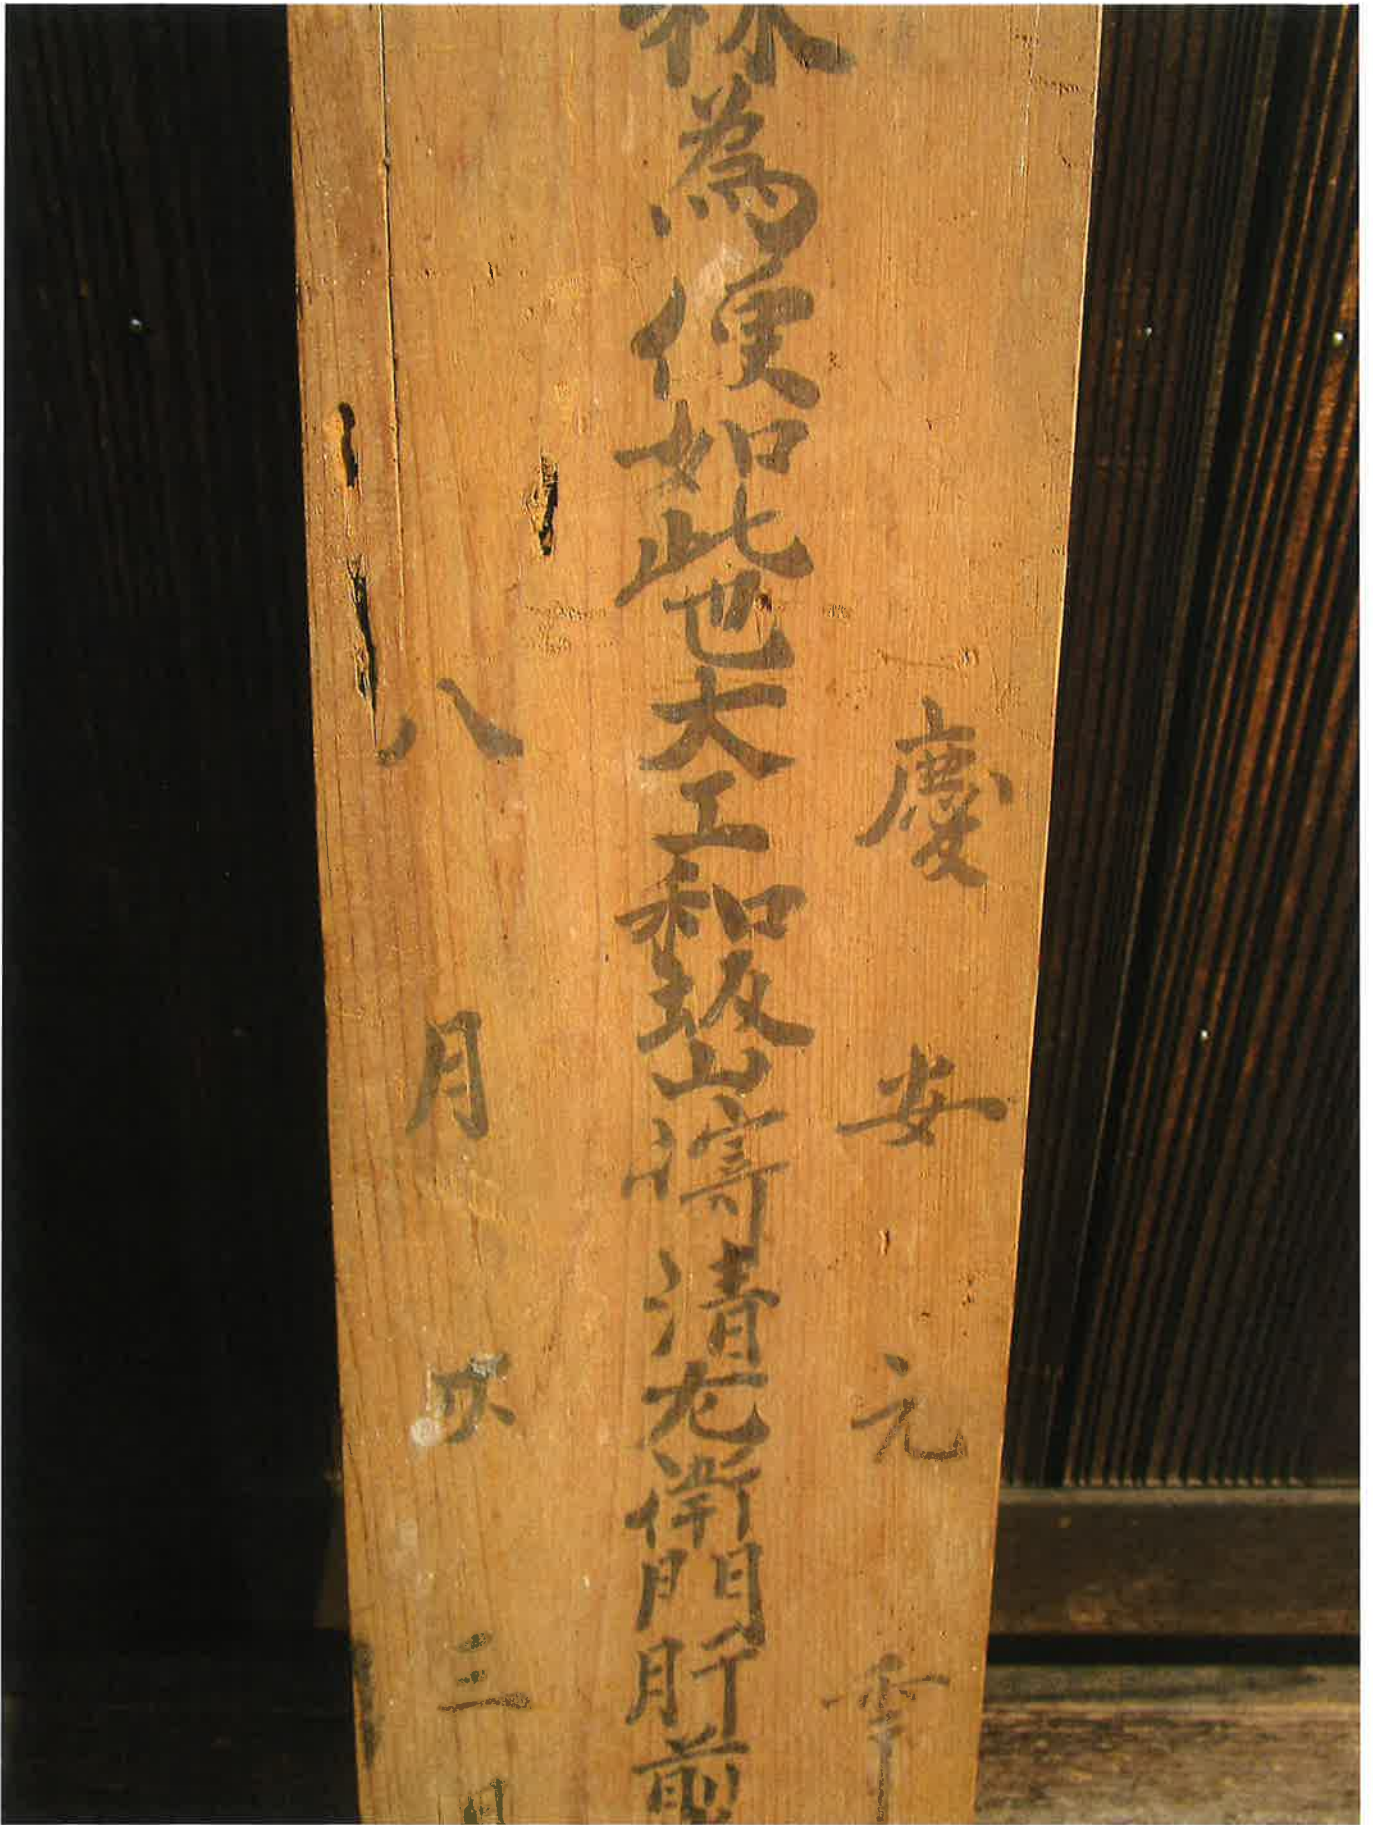 慶安元年
為便如此也大工和坂山清左衛門肝
八月三日